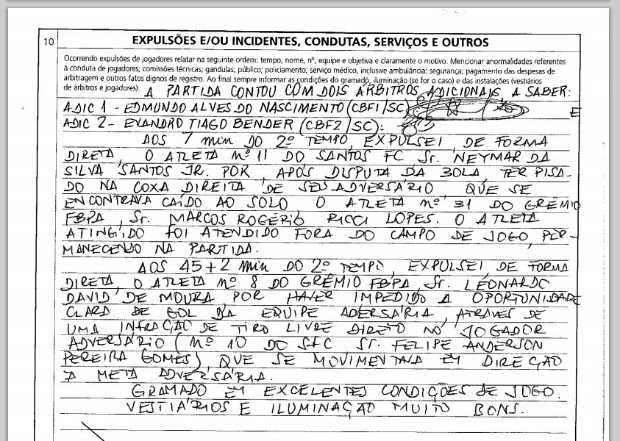 10
EXPULSÕES E/OU INCIDENTES, CONDUTAS, SERVIÇOS E OUTROS
Ocorrendo expulsões de jogadores relatar na seguinte ordem: tempo, nome, nº, equipe e objetiva e claramente o motivo. Mencionar anormalidades referentes
à conduta de jogadores; comissões técnicas; gandulas; público; policiamento; serviço médico, inclusive ambulância; segurança; pagamento das despesas de
arbitragem e outros fatos dignos de registro. Ao final sempre informar as condições do gramado, iluminação (se for o caso) e das instalações (vestiários
de árbitros e jogadores).
A PARTIDA CONTOU COM DOIS ÁRBITROS ADICIONAIS A SABER:
ADIC 1 - EDMUNDO ALVES DO NASCIMENTO (CBF1/SC) E
ADIC 2 - EVANDRO TIAGO BENDER (CBF2/SC):
AOS 7 min DO 2º TEMPO, EXPULSEI DE FORMA
DIRETA, O ATLETA Nº 11 DO SANTOS FC Sr. NEYMAR DA
SILVA SANTOS JR. POR, APÓS DISPUTA DA BOLA, TER PISA-
DO NA COXA DIREITA DE SEU ADVERSÁRIO, QUE SE
ENCONTRAVA CAÍDO AO SOLO O ATLETA Nº 31 DO GRÊMIO
FBPA, Sr. MARCOS ROGÉRIO RICCI LOPES. O ATLETA
ATINGIDO FOI ATENDIDO FORA DO CAMPO DE JOGO, PER-
MANECENDO NA PARTIDA.
AOS 45+2 min DO 2º TEMPO, EXPULSEI DE FORMA
DIRETA, O ATLETA Nº 8 DO GRÊMIO FBPA, Sr. LEONARDO
DAVID DE MOURA POR HAVER IMPEDIDO A OPORTUNIDADE
CLARA DE GOL DA EQUIPE ADERSÁRIA, ATRAVÉS DE
UMA INFRAÇÃO DE TIRO LIVRE DIRETO NO JOGADOR
ADVERSÁRIO (Nº 10 DO SFC Sr. FELIPE ANDERSON
PEREIRA GOMES), QUE SE MOVIMENTAVA EM DIREÇÃO
A META ADVERSÁRIA.
GRAMADO EM EXCELENTES CONDIÇÕES DE JOGO.
VESTIÁRIOS E ILUMINAÇÃO MUITO BONS.